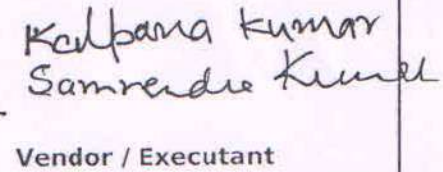 Kalpana Kumar
Samrendra Kumar
Vendor / Executant